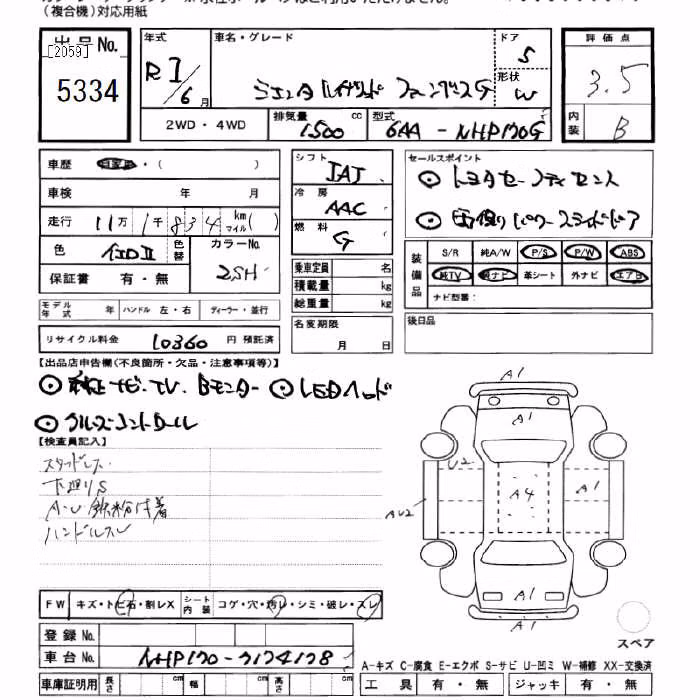 (複合機)対応用紙
出品No.
[2059]
5334
年式
R1/6月
車名・グレード
シエンタ ハイブリッド ファンベースG
ドア
5
形状
W
2WD・4WD
排気量
1500 cc
型式
6AA-NHP170G
評価点
3.5
内装
B
車歴 自家用・( )
車検 年 月
走行 11万1千834km(マイル)
色 イエローⅡ
色替
カラーNo.
2SH
保証書 有・無
シフト
IAT
冷房
AAC
燃料
G
乗車定員 名
積載量 kg
総重量 kg
セールスポイント
トヨタセーフティセンス
両側パワースライドドア
装備品
S/R 純A/W P/S P/W ABS
純TV 純ナビ 革シート 外ナビ エアB
ナビ型番:
モデル年式 年 ハンドル 左・右 ディーラー・並行
リサイクル料金 10360 円 預託済
名変期限
月 日
後日品
【出品店申告欄(不良箇所・欠品・注意事項等)】
純正ナビ・TV・Bモニター LEDヘッド
クルーズコントロール
【検査員記入】
スタッドレス
下廻りS
A・U 鉄粉付着
ハンドルスレ
A1
A1
U2
A4
A1
AU2
A1
A1
スペア
FW キズ・トビ石・割レX
シート内装 コゲ・穴・汚レ・シミ・破レ・スレ
登録No.
車台No. NHP170-7174178
A-キズ C-腐食 E-エクボ S-サビ U-凹ミ W-補修 XX-交換済
車庫証明用 長さ cm 幅 cm 高さ cm
工具 有・無 ジャッキ 有・無